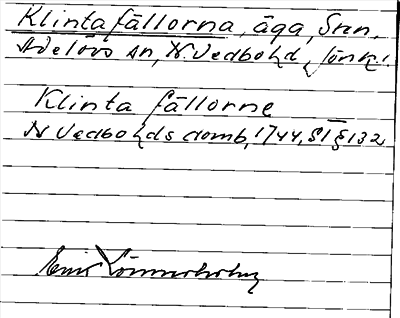 Klintafällorna, äga, Sren.
Adelövs sn, N. Vedbohd, Jönk.l.
Klinta fällorne
N Vedbohds domb, 1744, ST § 132